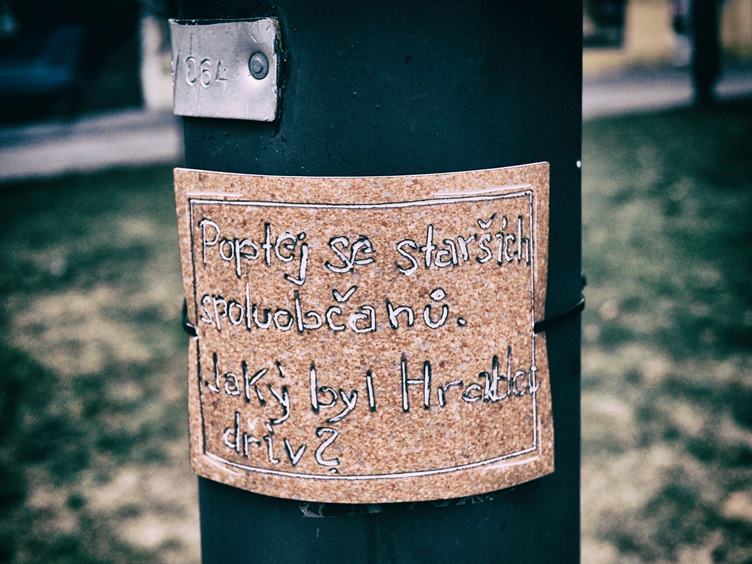 064
Poptej se starších
spoluobčanů.
Jaký byl
dřív?